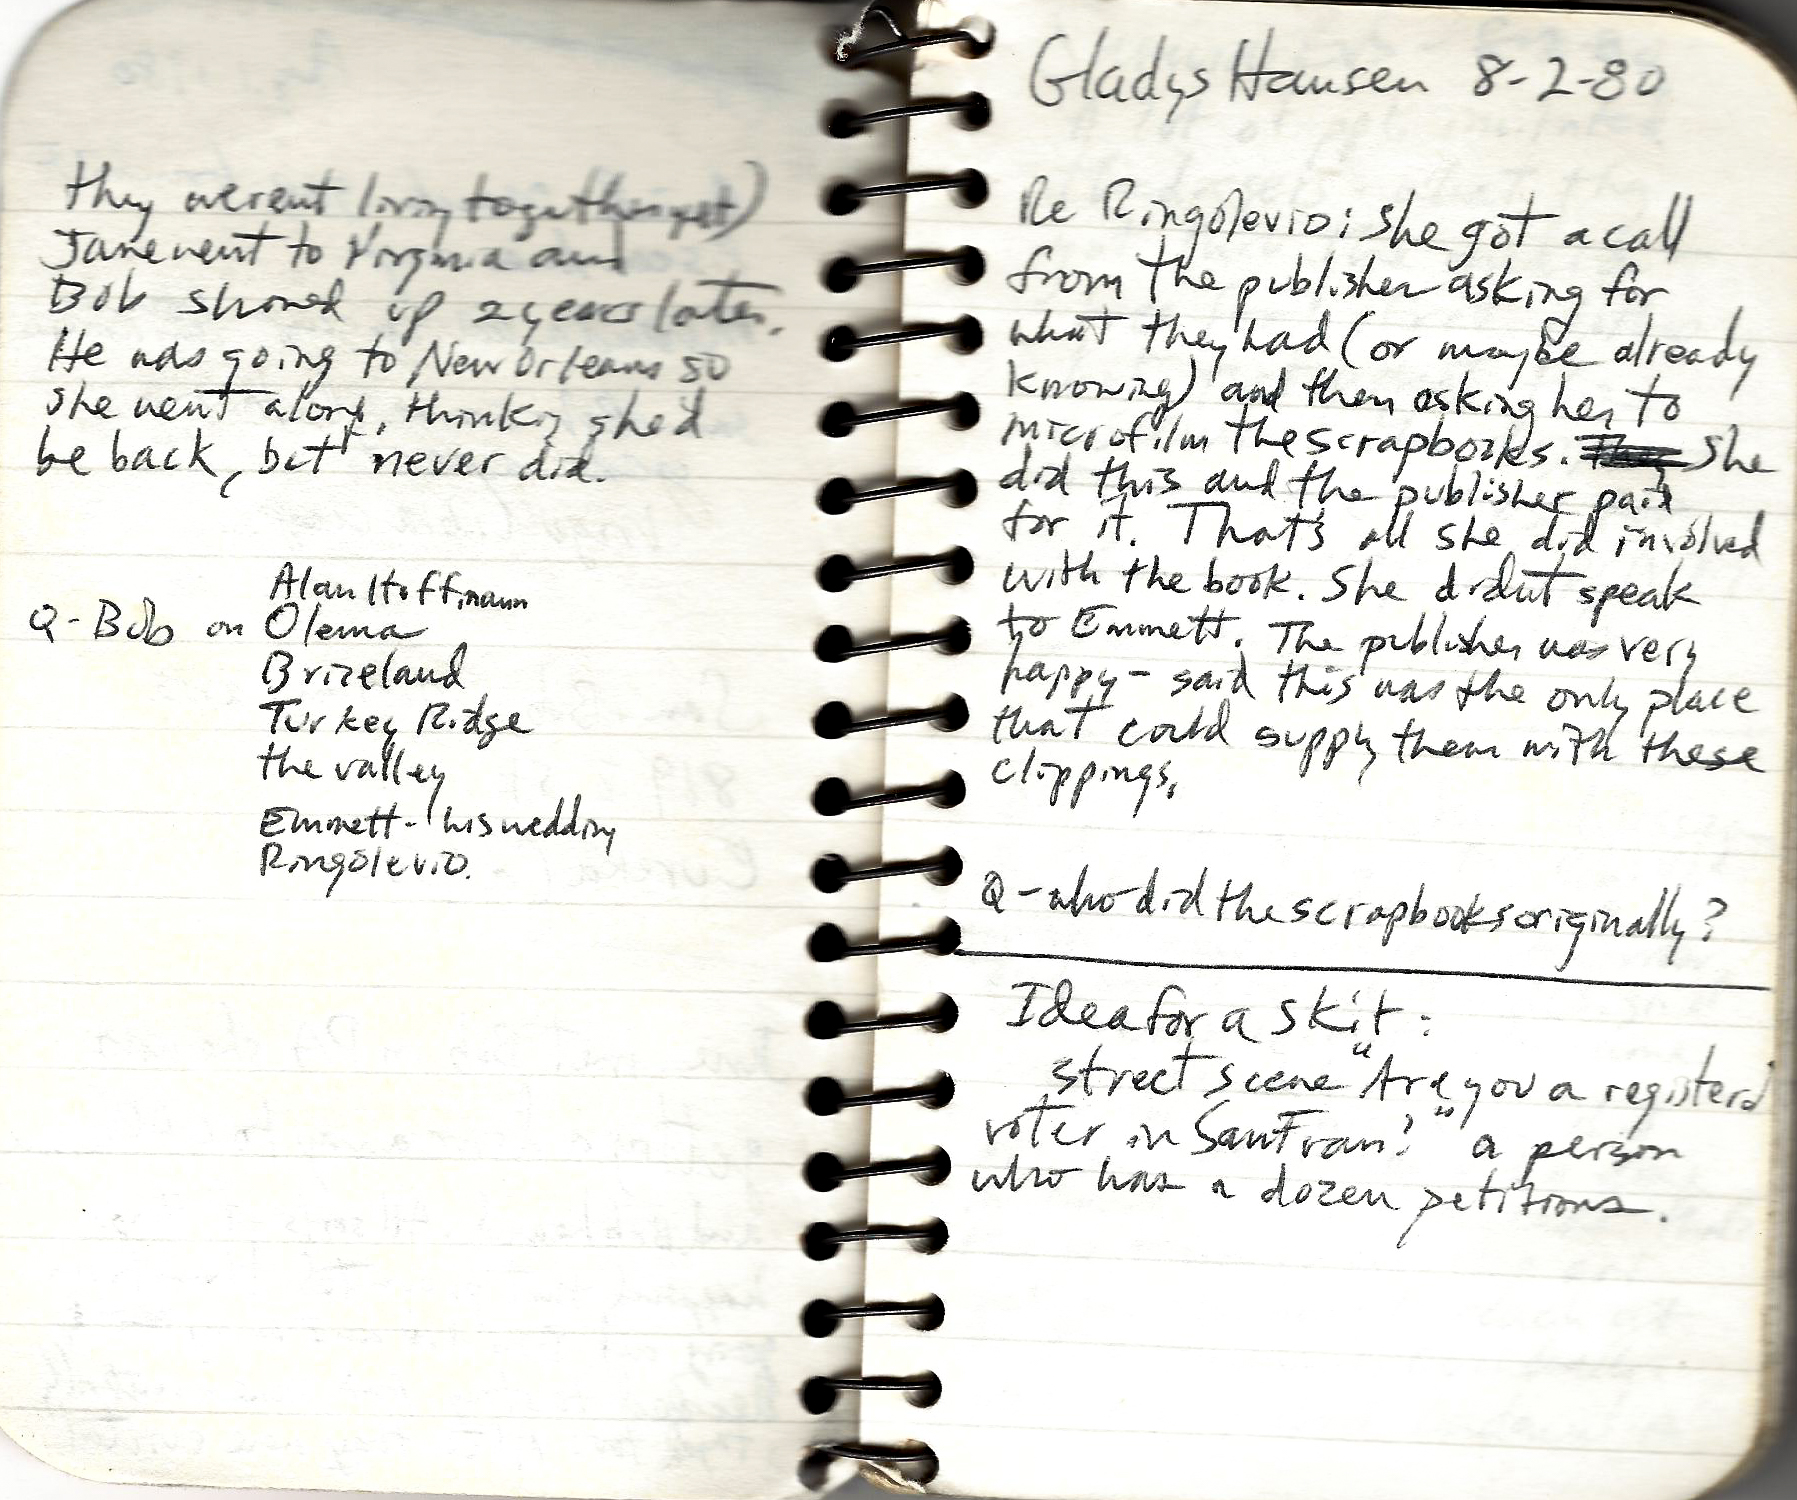 they werent living together yet)
Jane went to Virginia and
Bob showed up 2 years later.
He was going to New Orleans so
she went along, thinking she'd
be back, but never did.
Alan Hoffmann
Q - Bob on Olema
Brizeland
Turkey Ridge
the valley
Emmett - his wedding
Ringolevio.
Gladys Hansen 8-2-80
Re Ringolevio: She got a call
from the publisher asking for
what they had (or maybe already
knowing) and then asking her to
microfilm the scrapbooks. She
did this and the publisher paid
for it. That's all she did involved
with the book. She didnt speak
to Emmett. The publisher was very
happy - said this was the only place
that could supply them with these
clippings.
Q - who did the scrapbooks originally?
Idea for a skit:
street scene "Are you a registerd
voter in San Fran?" a person
who has a dozen petitions.